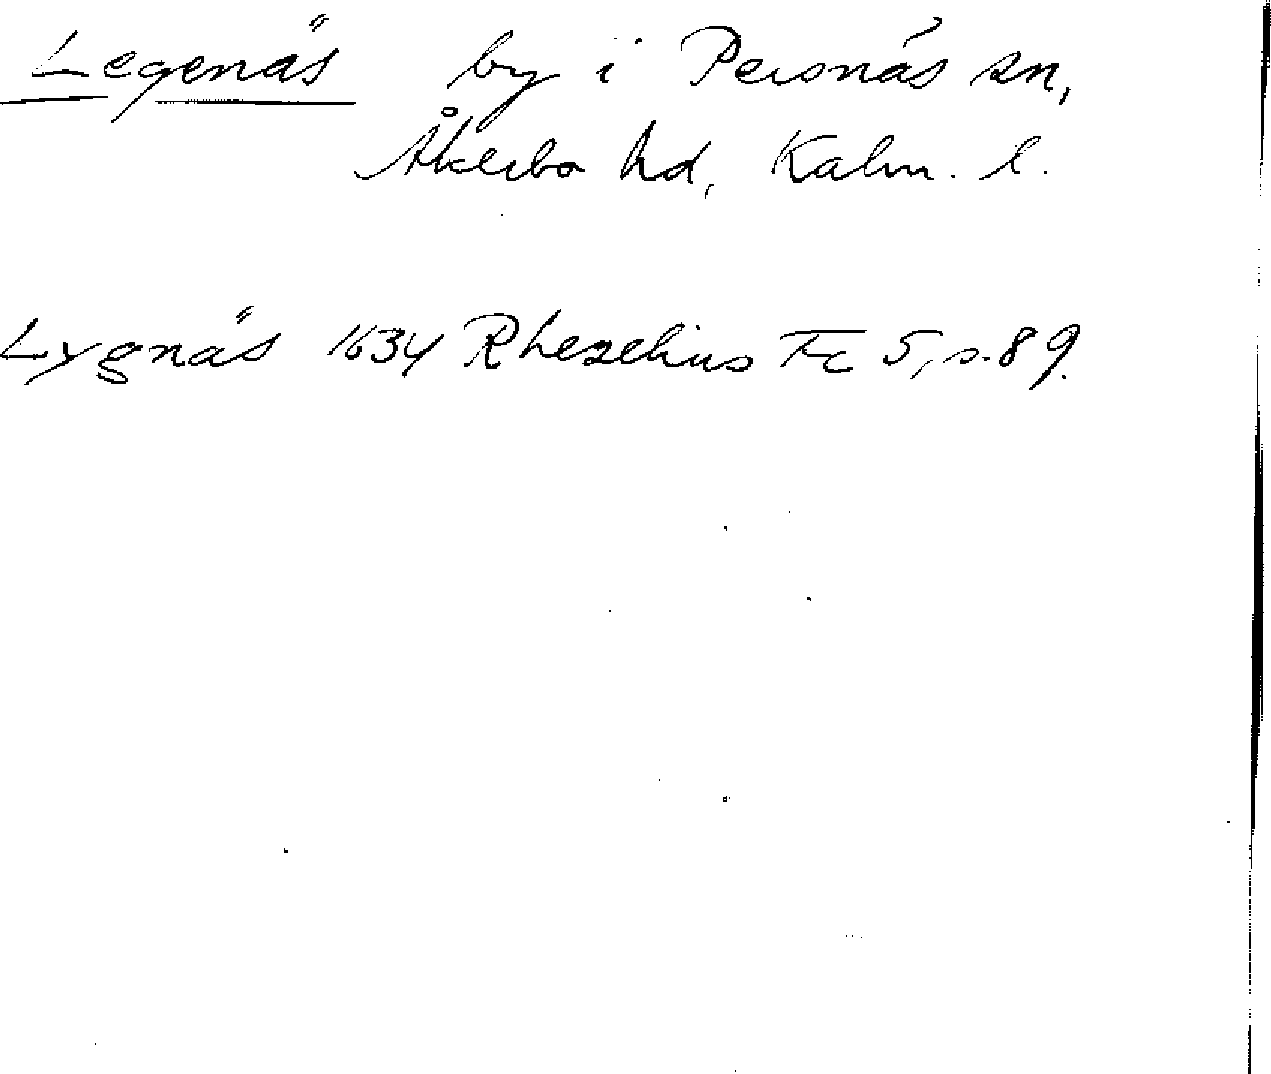 Legenäs by i Persnäs sn,
Åkerbo hd, Kalm. l.
Lygnäs 1634 Rhezelius Fc 5, s. 89.